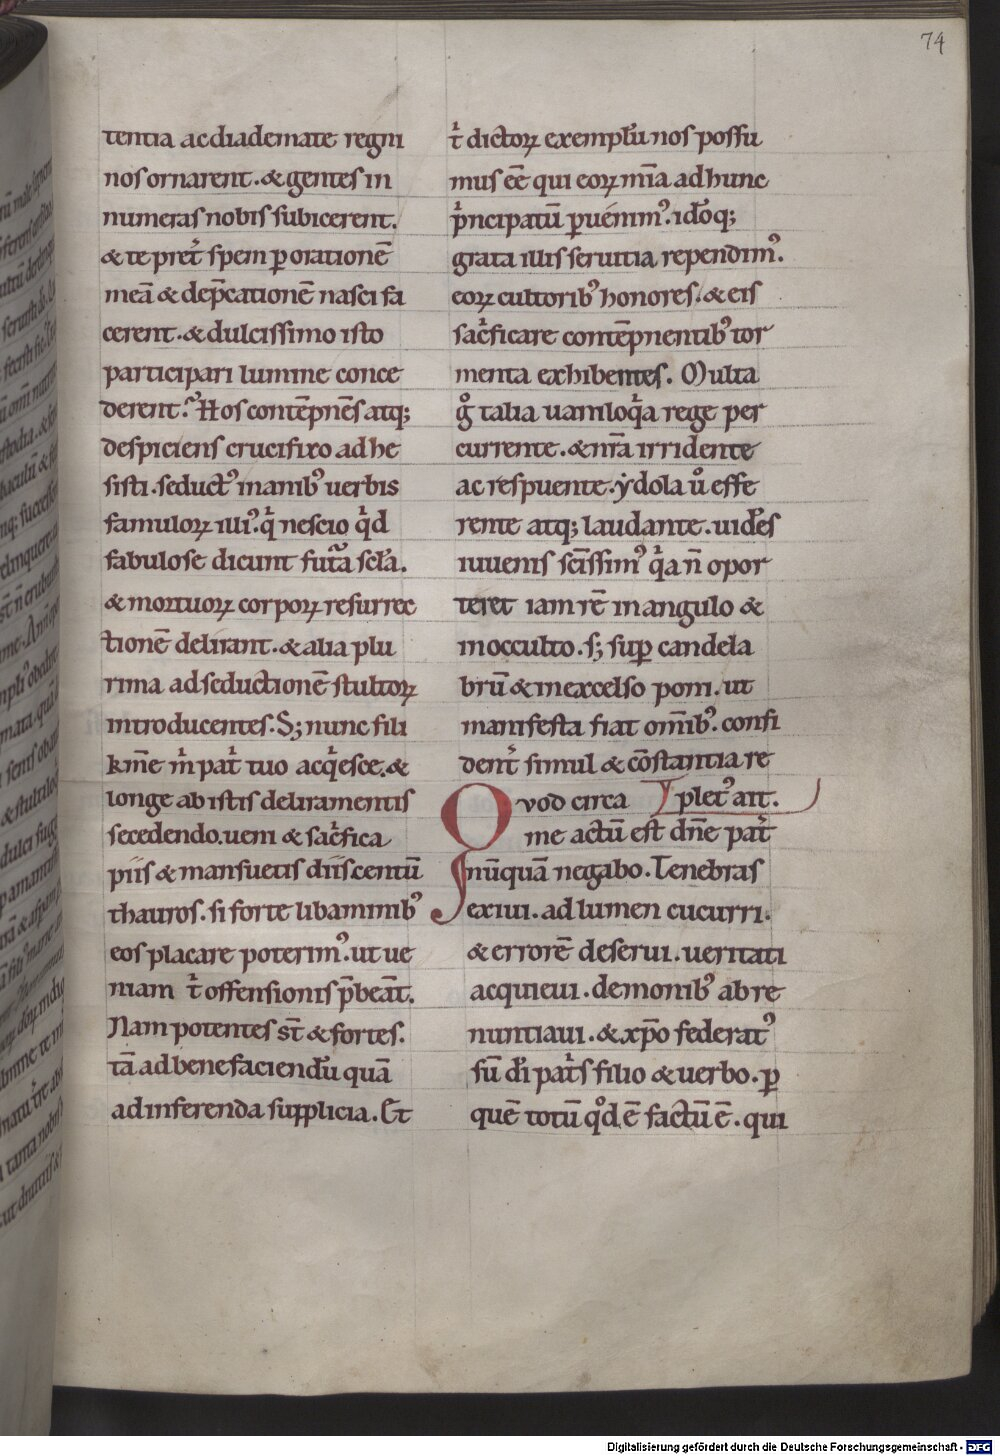 74
tentia ac diademate regni
nos ornarent. & gentes in
numeras nobis subicerent.
& te pret̾ spem p̱ orationē
meā & dep̄cationē nasci fa
cerent. & dulcissimo isto
participari lumine conce
derent. Hos contēpnēs atq;
despiciens crucifixo adhe
sisti. seductꝰ inanibꝰ uerbis
famuloꝝ illiꝰ. qͥ nescio qͥd
fabulose dicunt
& mortuoꝝ corpoꝝ resurrec
tionē delirant. & alia plu
rima ad seductionē stultoꝝ
introducentes. S; nunc fili
km̄e m̾ pat̾ tuo acqͥesce. &
longe ab istis deliramentis
secedendo. ueni & sac̾fica
piis & mansuetis diis centū
thauros. si forte libaminibꝰ
eos placare poterimꝰ. ut ue
niam t̾ offensionis p̄beāt.
Nam potentes st̄ & fortes.
tā ad bene faciendū quā
ad inferenda supplicia. Et
t̾ dictoꝝ exemplū nos possu
mus eē qui eoꝝ ad hunc
pͥncipatū puenimꝰ. idōq;
grata illis seruitia rependimꝰ.
eoꝝ cultoribꝰ honores. & eis
sac̾ficare contēpnentibꝰ tor
menta exhibentes. Multa
gͦ talia uaniloqͣa rege per
currente. & nr̄a irridente
ac respuente. ydola uͦ effe
rente atq; laudante. uidēs
iuuenis sc̄issimꝰ qͥa n̄ opor
teret iam rē in angulo &
in occulto. s; sup̱ candela
brū & in excelso poni. ut
manifesta fiat om̄ibꝰ. confi
dent̾ simul & cōstantia re
Quod circa pletꝰ ait.
me actū est dn̄e pat̾
nūquā negabo. Tenebras
exiui. ad lumen cucurri.
& errorē deserui. ueritati
acquieui. demonibꝰ abre
nuntiaui. & xp̄o federatꝰ
sū dī patͥs filio & uerbo. p̱
quē totū qͦd ē factū ē. qui
Digitalisierung gefördert durch die Deutsche Forschungsgemeinschaft - DFG